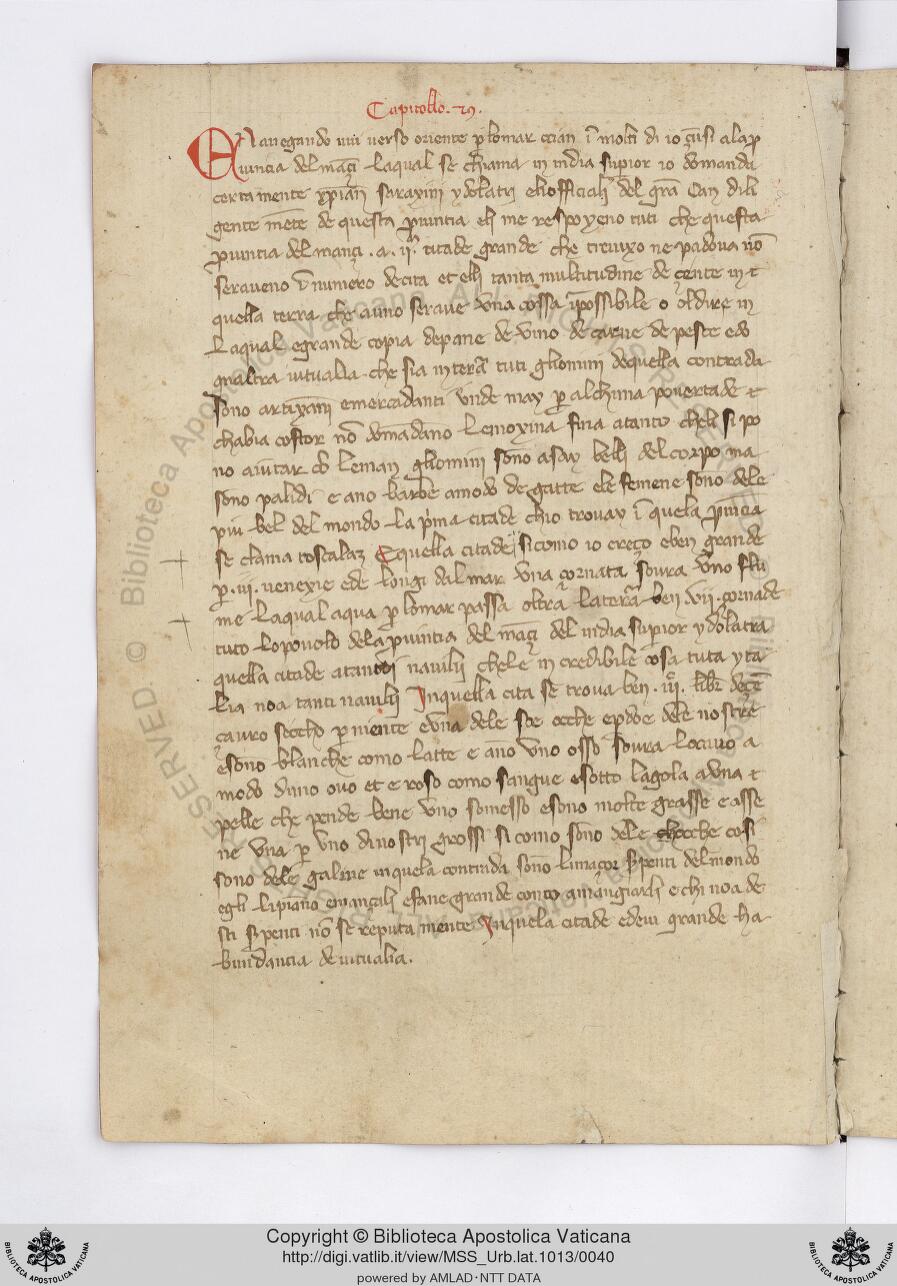 Capitollo. 29.
E Navegando viii verso oriente ꝑ lo mar ocian ī molti di io çunsi ala ꝓ
vincia del mançi laqual se chiama in india supior io domandai
certamente xpiani saraxini ydolatri eli officiali del grā Can dili
gente mēte de questa ꝓvincia eli me respoxeno tuti che questa
ꝓvincia del mançi .a. citade grande che trevixo ne padova nō
seraveno ī numero de cita et elli tanta multitudine de çente in
quella terra che avno serave una cossa īpossibile o oldire in
laqual e grande copia de pane de vino de carne de pesce e do
gnaltra vitualia che sia in terā tuti gliomini dequella contrada
sono artixani e mercadanti unde may ꝑ alchuna povertade
chabia costor nō domādano lemoxina fina atanto cheli si po
no aiutar cō le man gliomini sono asay belli del corpo ma
sono palidi e ano barbe amodo de gatte e le femene sono dele
piu bel del mondo La ꝑma citade chio trovay ī quela ꝓvīcia
se chiama Equella citade sicomo io creço eben grande
ꝑ .iii. venexie ede lungi dal mar una çornata soura vno flu
me laqual aqua ꝑ lo mar passa oltra la terā ben xii çornade
tuto lo povolo dela ꝓvincia del māçi del india supior ydolatra
quella citade a tanti navilii chele incredibile cosa tuta yta
lia noa tanti navilii Inquella cita se trova ben .iii. libr de çē
çavro ꝑ niente e vna dele soe oche e ꝑ doe dele nostre
e sono blanche como latte e ano vno osso soura lo cavo a
modo duno ovo et e roso como sangue e sotto la gola a vna
pelle che pende bene vno somesso e sono molte grasse e asse
ne vna ꝑ vno di nostri grossi si como sono dele choche cosi
sono dele galine in quela contrada sono li maçor sꝑenti del mondo
egli li piano e mançali e fane grande conto a mangiarli e chi no a de
sti sꝑenti nō se reputa niente Inquela citade e de vi grande ha
bundancia de vitualia.
Copyright © Biblioteca Apostolica Vaticana
http://digi.vatlib.it/view/MSS_Urb.lat.1013/0040
powered by AMLAD·NTT DATA
BIBLIOTECA APOSTOLICA VATICANA
BIBLIOTECA APOSTOLICA VATICANA